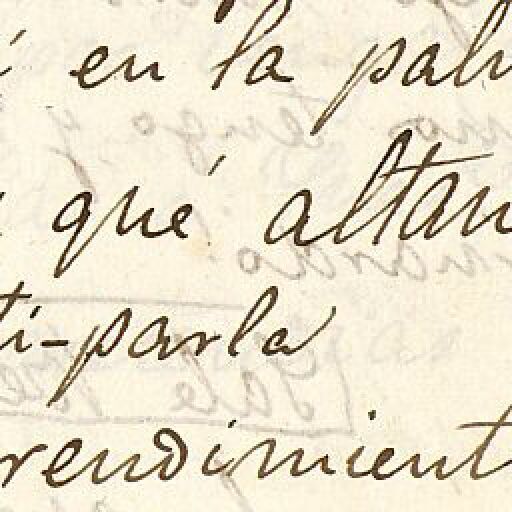 en la pal
qué altan
ti-parla
rendimient